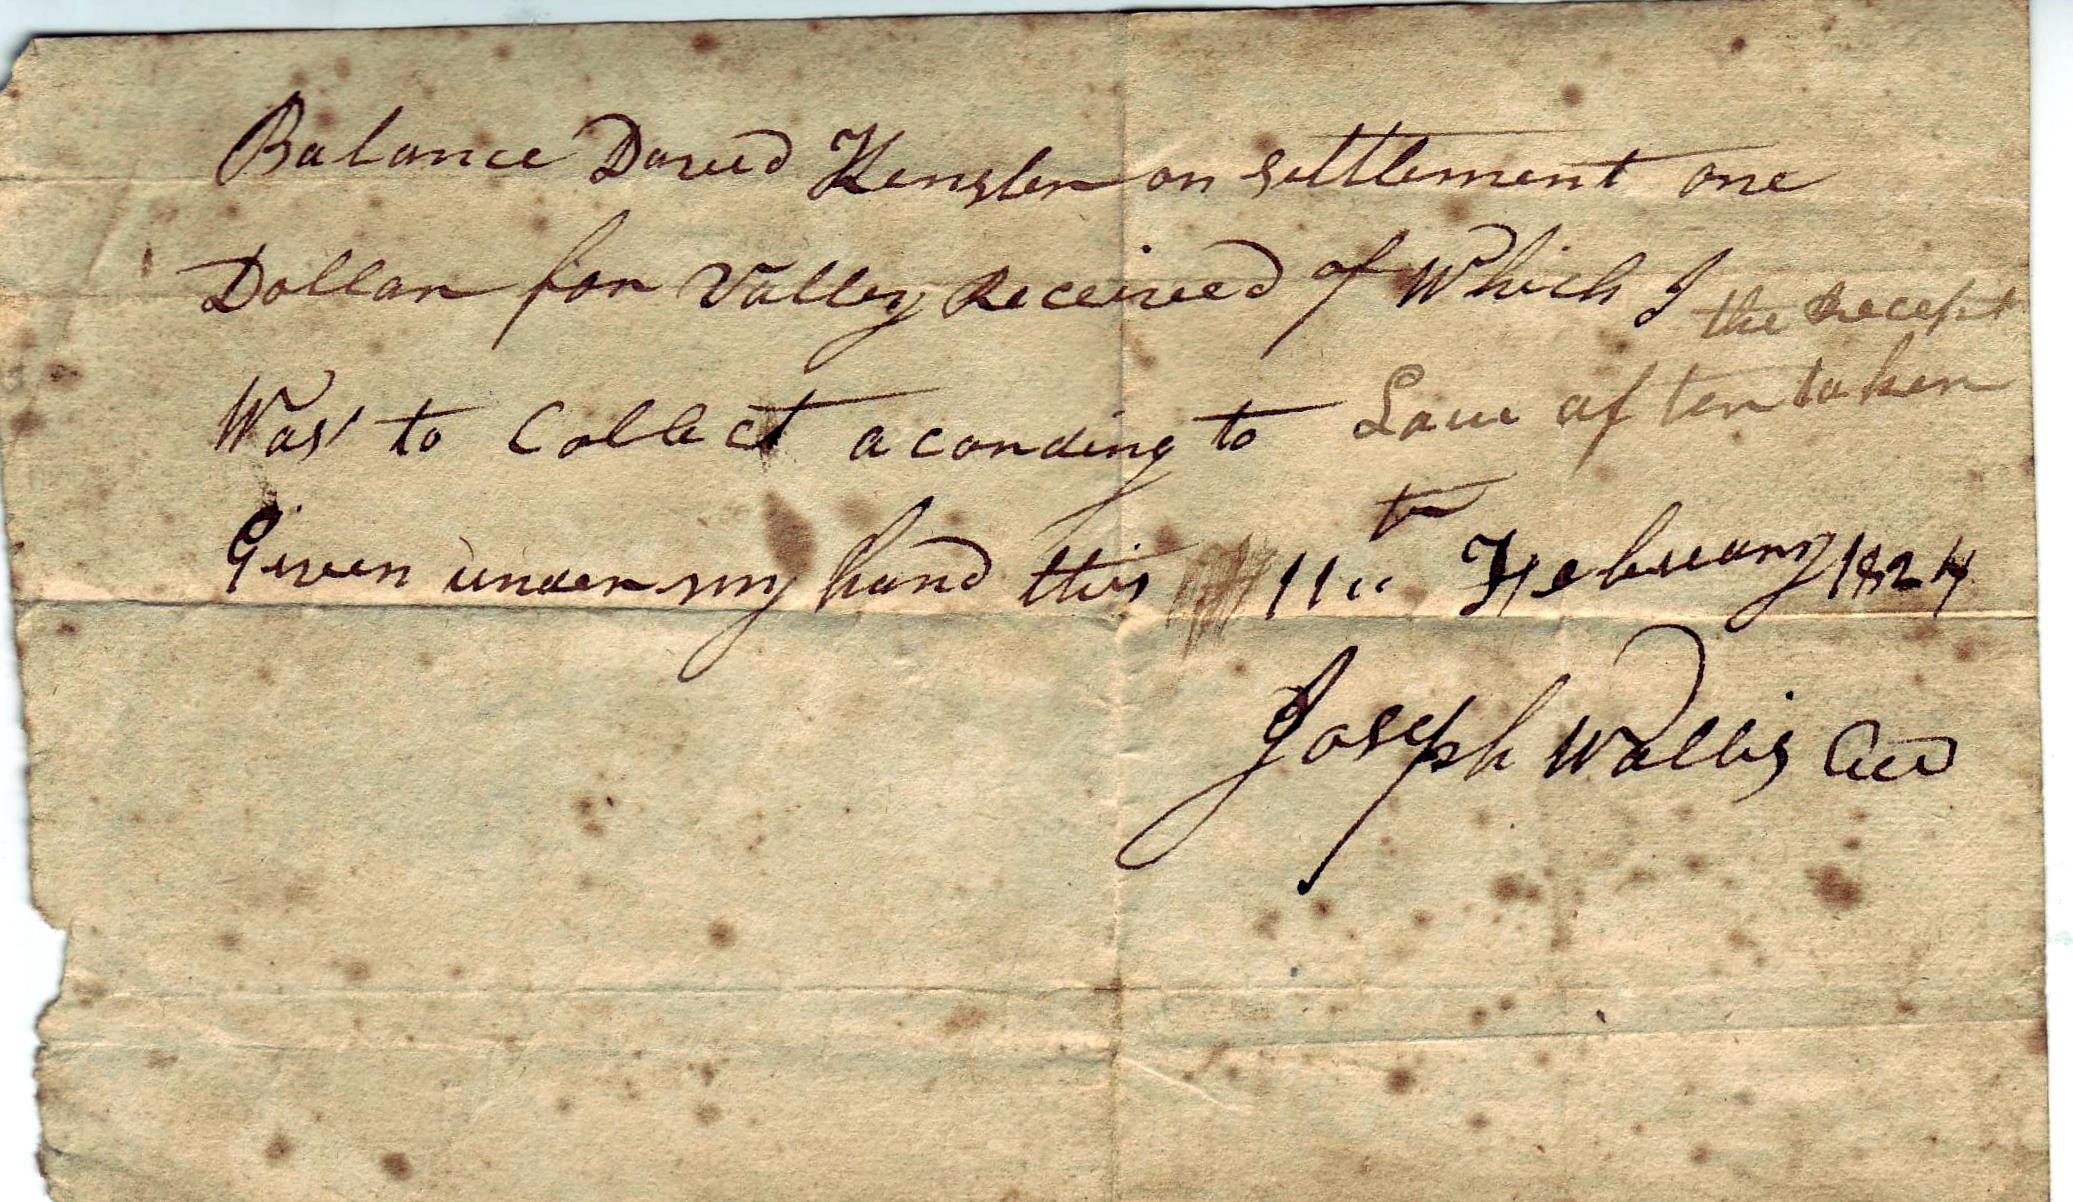 Balance David Hensler on settlement one
Dollar for Valley Received of Which I
the Recept
Was to Collect aconding to Law after taken
Given under my hand this 11th February 1824
Joseph Wallis